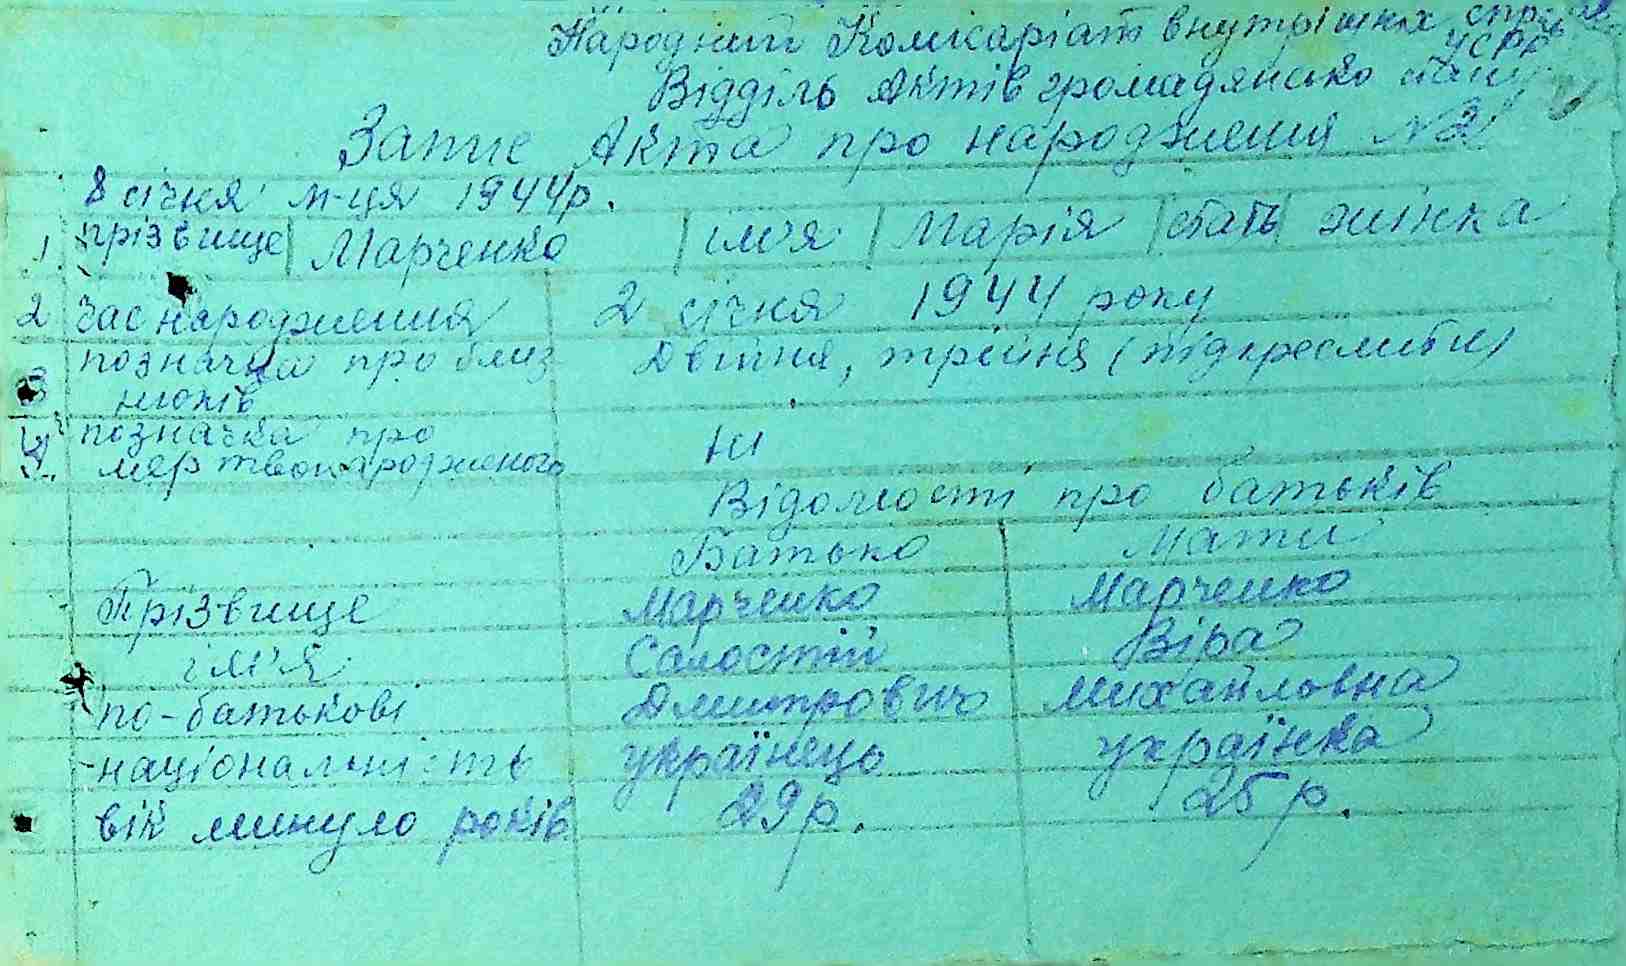 Народній Комісаріат внутрішніх справ
УСРР
Відділь Актів громадянсько стану
Запис Акта про народження №2
8 січня м-ця 1944р.
1. прізвище Марченко імʼя Марія стать жінка
2 час народження 2 січня 1944 року
3 позначка про близ Двійня, трійня (підкреслити)
нюків
4. позначка про ні
мертвонародженого
Відомості про батьків
Батько Мати
Прізвище Марченко Марченко
імʼя Салостій Віра
по-батькові Дмитрович Михайловна
національність українець українка
вік минуло років 29р. 25р.